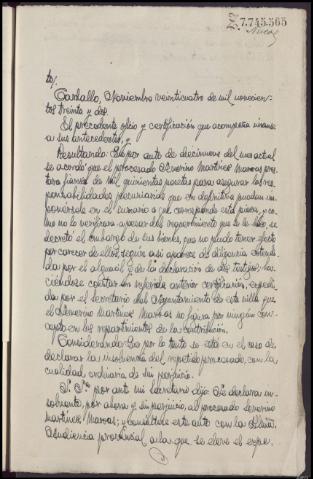 7.745.565
Carballo, Noviembre veinticuatro de mil novecien-
tos treinta y dos.
El precedente oficio y certificación que acompaña únanse
a sus antecedentes, y
Resultando: Que por auto de diecinueve del mes actual
se acordó que el procesado Severino Martínez Mancos pres-
tara fianza de mil quinientas pesetas para asegurar las res-
ponsabilidades pecuniarias que en definitiva puedan im-
ponérsele en el sumario a que corresponde esta pieza, y co-
mo no la verificara apesar del requerimiento que se le hizo, se
decretó el embargo de sus bienes, que no pudo tener efecto
por carecer de ellos, según así aparece de diligencia extendi-
da por el alguacil y de la declaración de dos testigos, ha-
ciéndose constar en referida anterior certificación, expedi-
da por el secretario del Ayuntamiento de esta villa que
el Severino Martínez no figura por ningún con-
cepto en los repartimientos de la contribución.
Considerando: Que por lo tanto se está en el caso de
declarar la insolvencia del repetido procesado, con la
cualidad ordinaria de sin perjuicio.
Sª Sª por ante mi Secretario dijo: Se declara in-
solvente, por ahora y sin perjuicio, al procesado Severino
Martínez; y consúltese este auto con la Ilma.
Audiencia provincial a la que se eleve el expe-